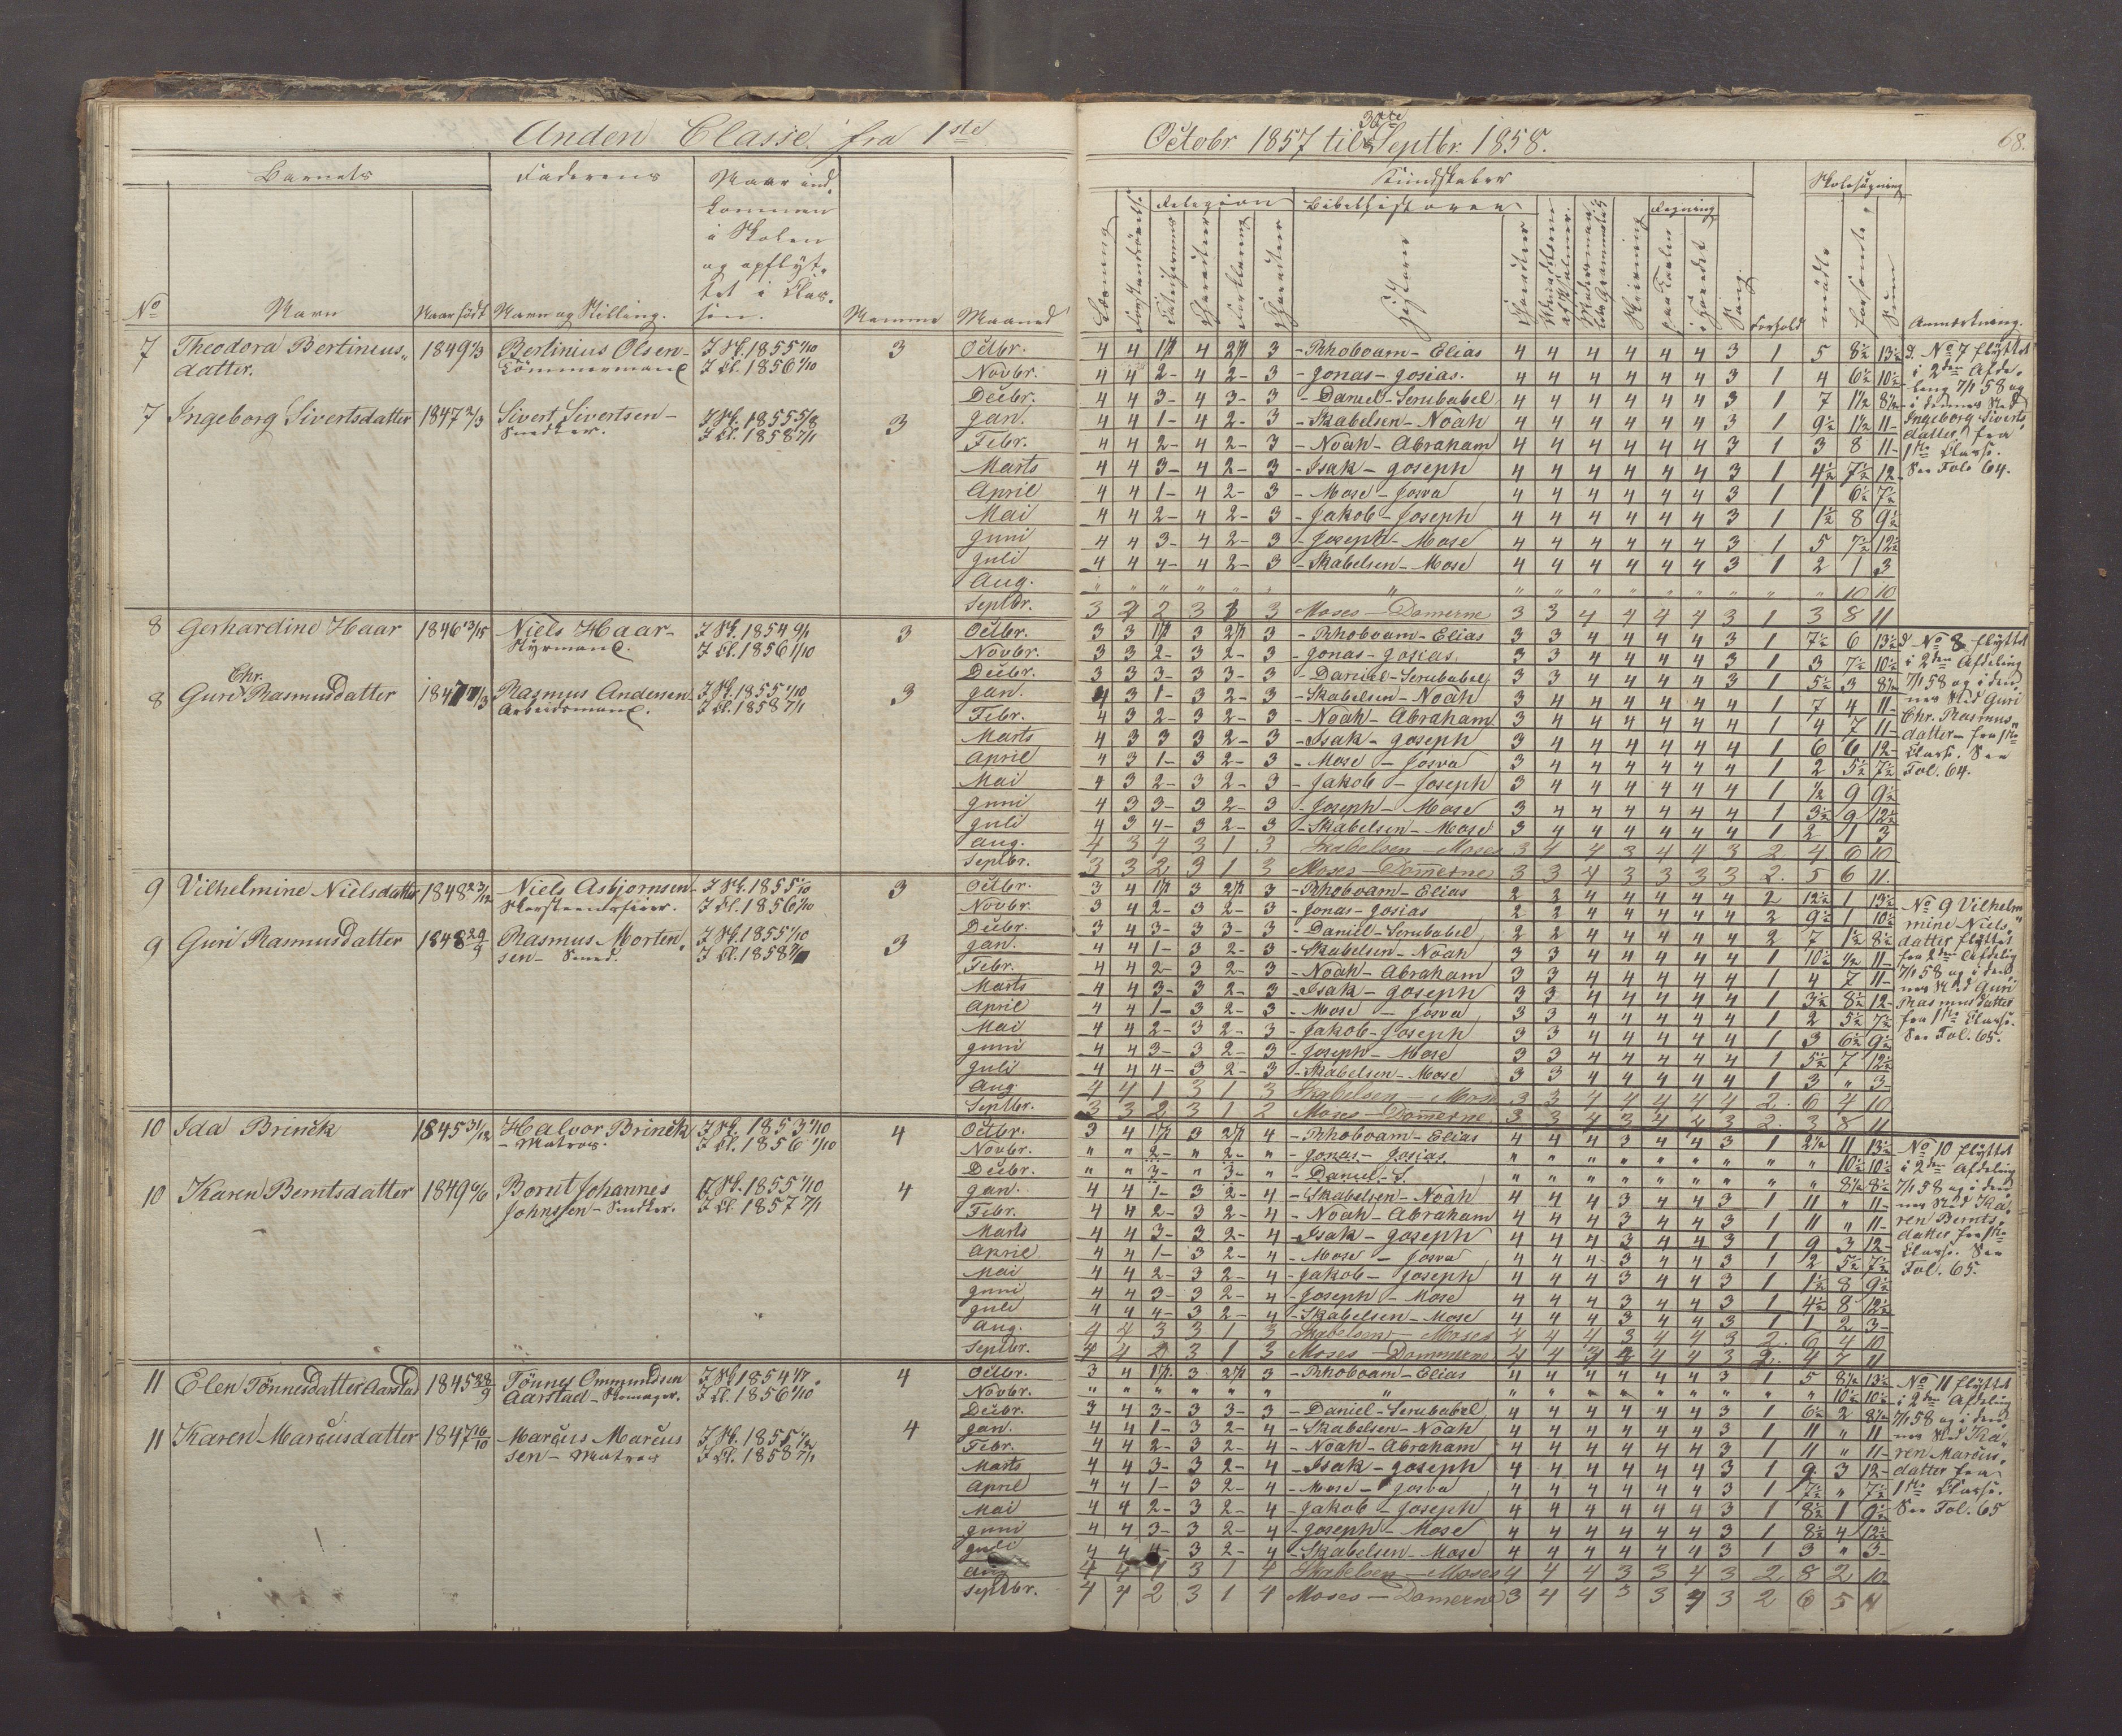 Anden Classe fra 1ste
Octobr 1857 til 30te Septbr. 1858.
68.
Barnets
Faderens
Naar ind-
kommen
i Skolen
og opflyt-
tet i Clas-
sen.
No
Navn
Naar født
Navn og Stilling.
Maaned
Kundskaber
Skolesøgning
Religion
Bibelhistorie
Regning
Læsning
Historie
Skrivning
Sang
Forhold
mødte
forsømte
Sum
Anmærkning.
7 Theodora Bertinius-
datter.
Bertinius Olsen
Tømmermand
I Sk. 1855 1/10
I Cl. 1856 1/10
3
7 Ingeborg Sivertsdatter 1847 2/3
Sivert Sivertsen
Snedker.
I Sk. 1855 5/8
I Cl. 1858 7/1
3
Octbr. 4 4 4 3 - Rhoboam - Elias 4 4 4 4 4 4 3 1 5 8½ 13½
Novbr. 4 4 2 - 4 2 - 3 - Jonas - Josias. 4 4 4 4 4 4 3 1 4 6½ 10½
Decbr. 4 4 3 - 4 3 - 3 - Daniel - Serubabel 4 4 4 4 4 4 3 1 7 1½ 8½
Jan. 4 4 1 - 4 2 - 3 - Skabelsen - Noah 4 4 4 4 4 4 3 1 9½ 1½ 11
Febr. 4 4 2 - 4 2 - 3 - Noah - Abraham 4 4 4 4 4 4 3 1 3 8 11
Marts 4 4 3 - 4 2 - 3 - Isak - Joseph 4 4 4 4 4 4 3 1 4½ 7½ 12
April 4 4 1 - 4 2 - 3 - Mose - Josva 4 4 4 4 4 4 3 1 1 6½ 7½
Mai 4 4 2 - 4 2 - 3 - Jakob - Joseph 4 4 4 4 4 4 3 1 1½ 8 9½
Juni 4 4 3 - 4 2 - 3 - Joseph - Mose 4 4 4 4 4 4 3 1 5 7½ 12½
Juli 4 4 4 - 4 2 - 3 - Skabelsen - Mose 4 4 4 4 4 4 3 1 2 1 3
Aug. " " " " " " " " " " " " " " " " 10 10
Septbr. 3 2 3 3 Moses - Domerne 3 3 4 4 4 4 3 1 3 8 11
d. No 7 flyttet
i 2den Afde-
ling 7/1 58 og
i dennes Sted
Ingeborg Siverts-
datter fra
1ste Classe.
See Fol. 64.
8 Gerhardine Haar 1846
Niels Haar
Styrmand.
I Sk. 1854 9/1
I Cl. 1856 1/10
3
8 Guri Chr. Rasmusdatter
Rasmus Andersen
Arbeidsmand.
I Sk. 1855 1/10
I Cl. 1858 7/1
3
Octbr. 3 3 3 3 - Rhoboam - Elias 3 3 4 4 4 4 3 1 7½ 6 13½
Novbr. 3 3 2 - 3 2 - 3 - Jonas - Josias. 3 3 4 4 4 4 3 1 3 7½ 10½
Decbr. 3 3 3 - 3 3 - 3 - Daniel - Serubabel 3 3 4 4 4 4 3 1 5½ 3 8½
Jan. 4 3 1 - 3 2 - 3 - Skabelsen - Noah 3 4 4 4 4 4 4 1 7 4 11
Febr. 4 3 2 - 3 2 - 3 - Noah - Abraham 3 4 4 4 4 4 4 1 4 7 11
Marts 4 3 3 3 2 - 3 - Isak - Joseph 3 4 4 4 4 4 4 1 6 6 12
April 4 3 1 - 3 2 - 3 - Mose - Josva 3 4 4 4 4 4 4 1 2 5½ 7½
Mai 4 3 2 - 3 2 - 3 - Jakob - Joseph 3 4 4 4 4 4 4 1 ½ 9 9½
Juni 4 3 3 - 3 2 - 3 - Joseph - Mose 3 4 4 4 4 4 4 1 3½ 9 12½
Juli 4 3 4 - 3 2 - 3 - Skabelsen - Mose 3 4 4 4 4 4 4 1 2 1 3
Aug. 4 3 4 3 1 3 Skabelsen - Moses 3 4 4 3 4 4 3 2 4 6 10
Septbr. 3 3 2 3 1 3 Moses - Domerne 3 3 4 3 3 3 3 2. 5 6 11
d No 8 flyttet
i 2den Afdeling
7/1 58 og i den-
nes Sted Guri
Chr. Rasmus-
datter fra 1ste
Classe. See
Fol. 64.
9 Vilhelmine Nielsdatter 1848 23/12
Niels Asbjørnsen
Skorsteensfeier.
I Sk. 1855 1/10
I Cl. 1856 1/10
3
9 Guri Rasmusdatter 1848 29/9
Rasmus Morten-
sen - Smed.
I Sk. 1855 1/10
I Cl. 1858
3
Octbr. 3 4 3 3 - Rhoboam - Elias 2 2 4 4 4 4 4 2 12½ 1 13½
Novbr. 3 4 2 - 3 2 - 3 - Jonas - Josias 2 2 4 4 4 4 4 2 9½ 1 10½
Decbr. 3 4 3 - 3 3 - 3 - Daniel - Serubabel 2 2 4 4 4 4 4 2 7 1½ 8½
Jan. 4 4 1 - 3 2 - 3 - Skabelsen - Noah 3 3 4 4 4 4 4 1 10½ ½ 11
Febr. 4 4 2 - 3 2 - 3 - Noah - Abraham 3 3 4 4 4 4 4 1 4 7 11
Marts 4 4 3 - 3 2 - 3 - Isak - Joseph 3 3 4 4 4 4 4 1 3½ 8½ 12
April 4 4 1 - 3 2 - 3 - Mose - Josva 3 3 4 4 4 4 4 1 2 5½ 7½
Mai 4 4 2 - 3 2 - 3 - Jakob - Joseph 3 3 4 4 4 4 4 1 3 6½ 9½
Juni 4 4 3 - 3 2 - 3 - Joseph - Mose 3 3 4 4 4 4 4 1 5½ 7 12½
Juli 4 4 4 - 3 2 - 3 - Skabelsen - Mose 3 3 4 4 4 4 4 1 3 " 3
Aug 4 4 1 3 1 3 Skabelsen - Mose 3 3 4 4 4 4 4 2. 6 4 10
Septbr. 3 3 2 3 1 2 Moses - Domerne 3 3 4 3 4 3 2. 3 8 11
No 9 Vilhelm-
mine Niels-
datter flyttet
fra 2den Afdelig
7/1 58 og i den-
nes Sted Guri
Rasmusdatter
fra 1ste Classe.
See Fol. 65.
10 Ida Brinck 1845 31/12
Halvor Brinck
- Matros.
I Sk. 1853 1/10
I Cl. 1856 1/10
4
10 Karen Berntsdatter 1849
Bernt Johannes
Johnssen - Snedker.
I Sk. 1855 1/10
I Cl. 1857 7/1
4
Octbr. 3 4 3 4 - Rhoboam - Elias 4 4 4 3 4 4 3 1 2½ 11 13½
Novbr. " " 2 - " 2 - " - Jonas - Josias. " " " " " " " " " 10½ 10½
Decbr. " " 3 - " 3 - " - Daniel - S. " " " " " " " " " 8½ 8½
Jan. 4 4 1 - 3 2 - 4 - Skabelsen - Noah 4 4 4 3 4 4 3 1 11 " 11
Febr. 4 4 2 - 3 2 - 4 - Noah - Abraham 4 4 4 3 4 4 3 1 11 " 11
Marts 4 4 3 - 3 2 - 4 - Isak - Joseph 4 4 4 3 4 4 3 1 9 3 12
April 4 4 1 - 3 2 - 4 - Mose - Josva 4 4 4 3 4 4 3 1 2 5½ 7½
Mai 4 4 2 - 3 2 - 4 - Jakob - Joseph 4 4 4 3 4 4 3 1 1½ 8 9½
Juni 4 4 3 - 3 2 - 4 - Joseph - Mose 4 4 4 3 4 4 3 1 4½ 8 12½
Juli 4 4 4 - 3 2 - 4 - Skabelsen - Mose 4 4 4 3 4 4 3 1 1 2 3
Aug. 4 4 3 3 1 3 Skabelsen - Moses 4 4 4 3 4 4 3 2. 6 4 10
Septbr. 4 4 2 3 1 3 Moses - Domerne 4 4 4 4 3 2. 4 7 11
No 10 flyttet
i 2den Afdeling
7/1 58 og i den-
nes Sted Ka-
ren Bernts-
datter fra 1ste
Classe. See
Fol. 65.
11 Elen Tønnesdatter Aarstad 1845 28/9
Tønnes Ommundsen
Aarstad - Skomager.
I Sk 1854
I Cl. 1856 1/10
4
11 Karen Marcusdatter 1847 16/10
Marcus Marcus
sen - Matros
I Sk. 1855
I Cl. 1858 7/1
4
Octbr. 3 4 3 3 - Rhoboam - Elias 4 4 4 4 4 4 3 1 5 8½ 13½
Novbr. " " " " " " " " " " " " " " " " 10½ 10½
Decbr. 3 4 3 - 3 3 - 3 - Daniel - Serubabel 4 4 4 4 4 4 3 1 6½ 2 8½
Jan. 4 4 1 - 3 2 - 4 - Skabelsen - Noah 4 4 4 4 4 4 3 1 11 " 11
Febr. 4 4 2 - 3 2 - 4 - Noah - Abraham 4 4 4 4 4 4 3 1 11 " 11
Marts 4 4 3 - 3 2 - 4 - Isak - Joseph 4 4 4 4 4 4 3 1 9 3 12
April 4 4 1 - 3 2 - 4 - Mose - Josva 4 4 4 4 4 4 3 1 7½ " 7½
Mai 4 4 2 - 3 2 - 4 - Jakob - Joseph 4 4 4 4 4 4 3 1 8½ 1 9½
Juni 4 4 3 - 3 2 - 4 - Joseph - Mose 4 4 4 4 4 4 3 1 8½ 4 12½
Juli 4 4 4 - 3 2 - 4 - Skabelsen - Mose 4 4 4 4 4 4 3 1 3 " 3
Aug 4 4 1 3 1 4 Skabelsen - Moses 4 4 4 3 3 4 3 2 8 2 10
Septbr. 4 4 2 3 1 4 Moses - Domerne 3 4 4 3 3 4 3 2 6 5 11
No 11 flyttet
i 2den Afdeling
7/1 58 og i den-
nes Sted Ka-
ren Marcus-
datter fra
1ste Classe.
See Fol. 65